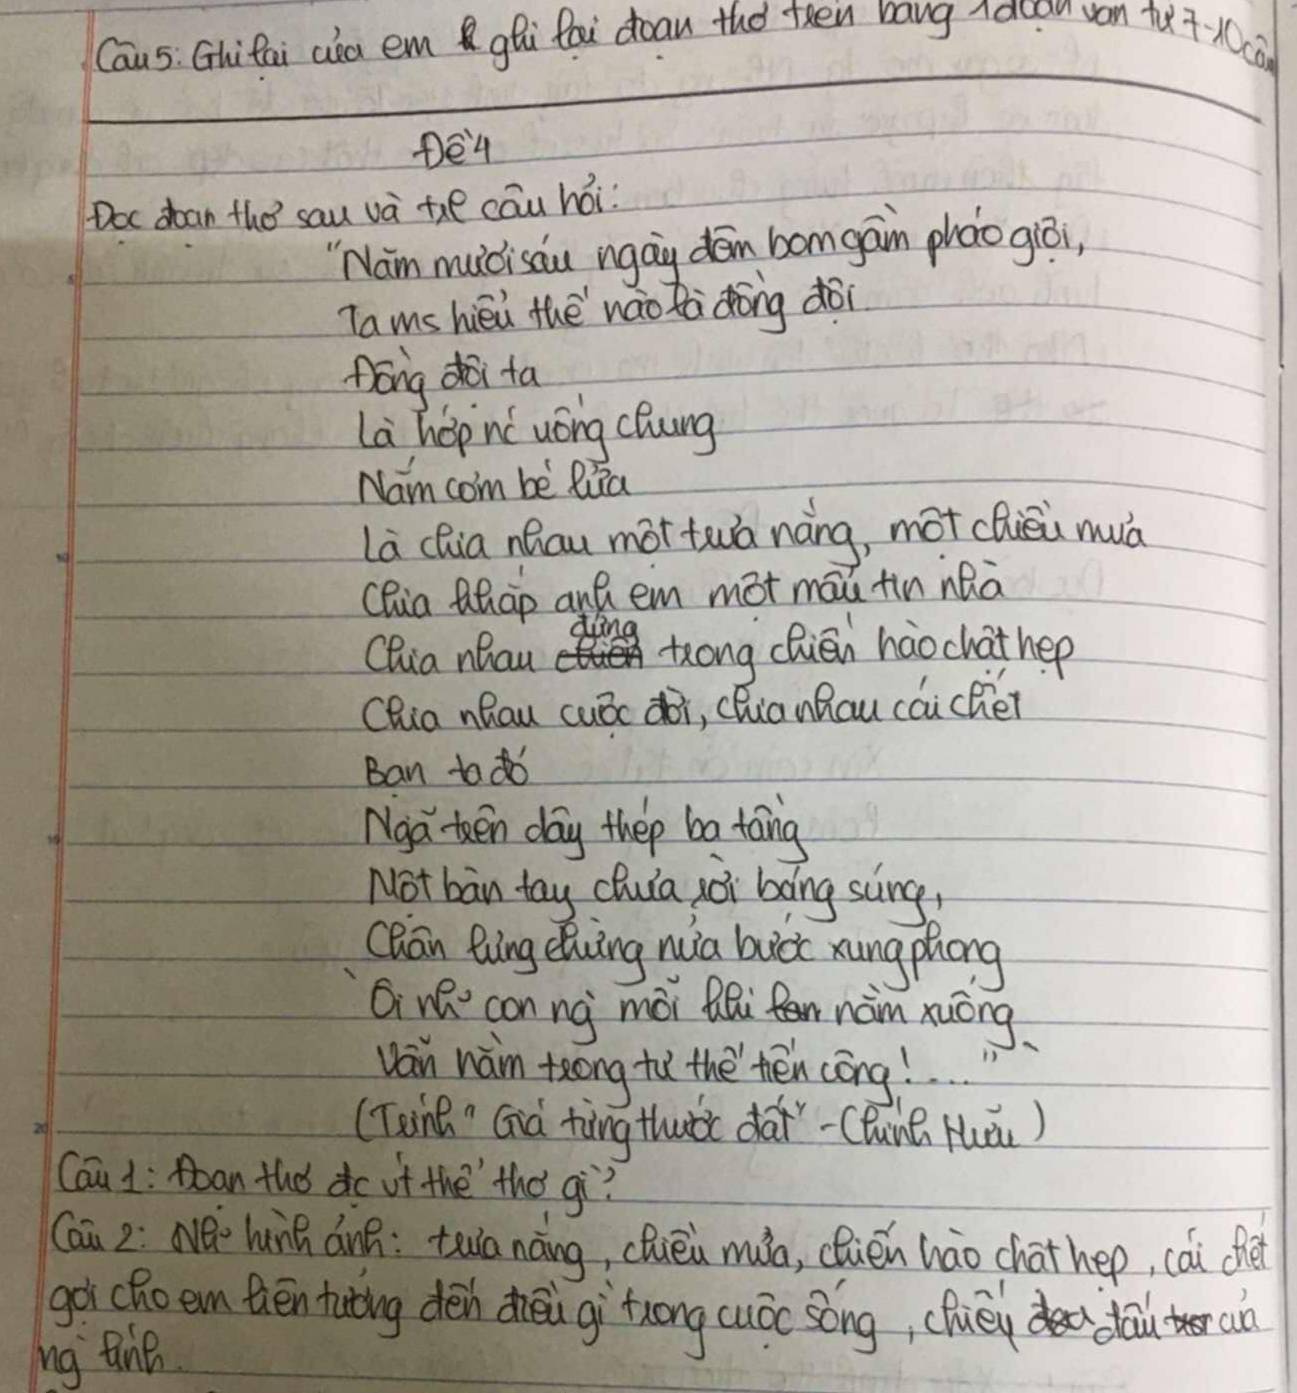 Câu 5: Ghi lại của em ghi lại đoạn thơ trên bằng 1 đoạn văn từ 7-10 câu
Đề 4
Đọc đoạn thơ sau và trl câu hỏi:
"Năm mươi sáu ngày đêm bom gầm pháo giội,
Ta ms hiểu thế nào là đồng đội
Đồng đội ta
Là hớp nc uống chung
Nắm cơm bẻ lửa
Là chia nhau một trưa nắng, một chiều mưa
Chia khắp anh em một mẩu tin nhà
Chia nhau đứng trong chiến hào chật hẹp
Chia nhau cuộc đời, chia nhau cái chết
Bạn ta đó
Ngã trên dây thép ba tầng
Một bàn tay chưa rời báng súng,
Chân lưng chừng nửa bước xung phong
Ôi nh~ con ng` mỗi khi nằm xuống
Vẫn nằm trong tư thế tiến công!...."
(Trính "Giá từng thước đất" - Chính Hữu)
Câu 1: Đoạn thơ đc vt thể thơ gì?
Câu 2: Nh~ hình ảnh: trưa nắng, chiều mưa, chiến hào chật hẹp, cái chết
gợi cho em liên tưởng đến điều gì trong cuộc sống, chiếy đấu của
ng` lính.